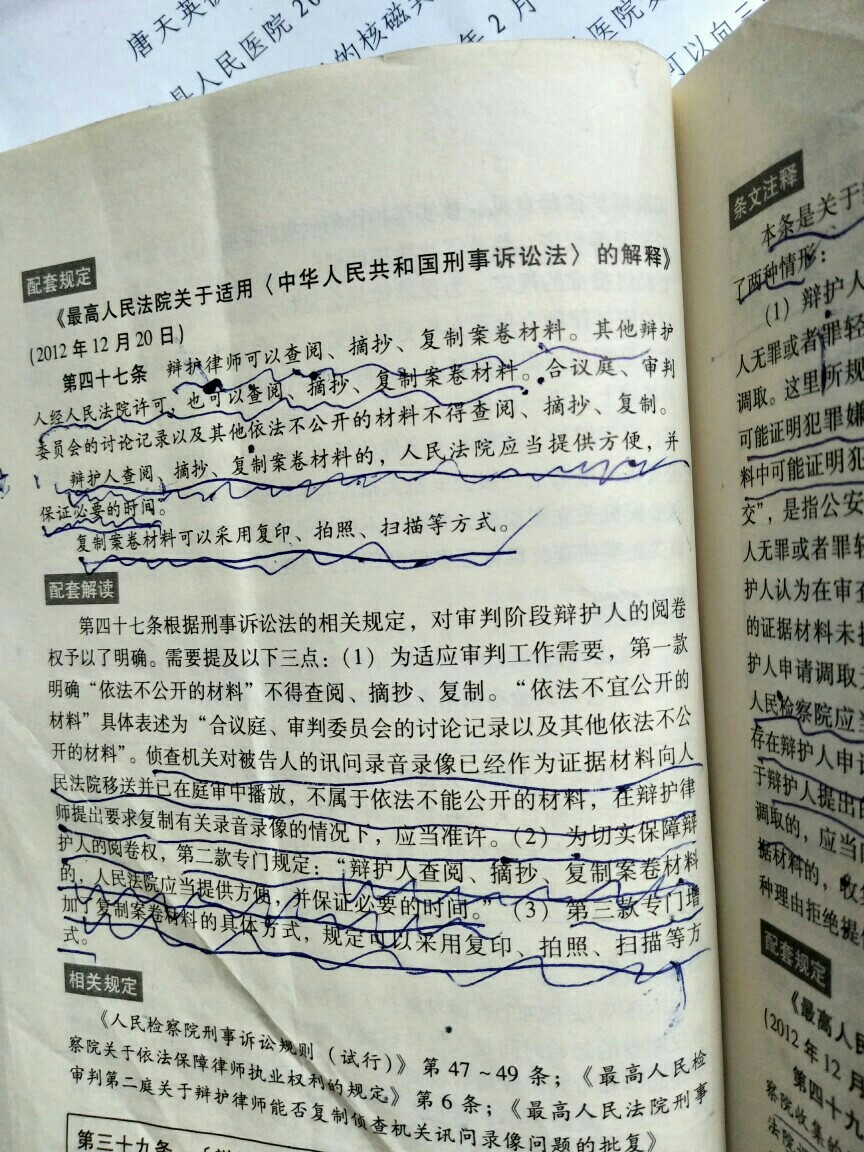 唐天英
县人民医院20
的核磁共
年2月
可以向三
配套规定
《最高人民法院关于适用〈中华人民共和国刑事诉讼法〉的解释》
(2012年12月20日)
第四十七条 辩护律师可以查阅、摘抄、复制案卷材料。其他辩护
人经人民法院许可，也可以查阅、摘抄、复制案卷材料。合议庭、审判
委员会的讨论记录以及其他依法不公开的材料不得查阅、摘抄、复制。
辩护人查阅、摘抄、复制案卷材料的，人民法院应当提供方便，并
保证必要的时间。
复制案卷材料可以采用复印、拍照、扫描等方式。
配套解读
第四十七条根据刑事诉讼法的相关规定，对审判阶段辩护人的阅卷
权予以了明确。需要提及以下三点：(1)为适应审判工作需要，第一款
明确“依法不公开的材料”不得查阅、摘抄、复制。“依法不宜公开的
材料”具体表述为“合议庭、审判委员会的讨论记录以及其他依法不公
开的材料”。侦查机关对被告人的讯问录音录像已经作为证据材料向人
民法院移送并已在庭审中播放，不属于依法不能公开的材料，在辩护律
师提出要求复制有关录音录像的情况下，应当准许。(2)为切实保障辩
护人的阅卷权，第二款专门规定：“辩护人查阅、摘抄、复制案卷材料
的，人民法院应当提供方便，并保证必要的时间。”(3)第三款专门增
加了复制案卷材料的具体方式，规定可以采用复印、拍照、扫描等方
式。
相关规定
《人民检察院刑事诉讼规则（试行）》第47～49条；《最高人民检
察院关于依法保障律师执业权利的规定》第6条；《最高人民法院刑事
审判第二庭关于辩护律师能否复制侦查机关讯问录像问题的批复》
第三十九条
条文注释
本条是关于
了两种情形：
(1)辩护人
人无罪或者罪轻
调取。这里所规
可能证明犯罪嫌
料中可能证明犯
交”，是指公安
人无罪或者罪轻
护人认为在审查
的证据材料未
护人申请调取
人民检察院应当
存在辩护人申
于辩护人提出的
调取的，应当
据材料的，收集
种理由拒绝提供
配套规定
《最高人民
(2012年12月
第四十九
察院收集的
法院